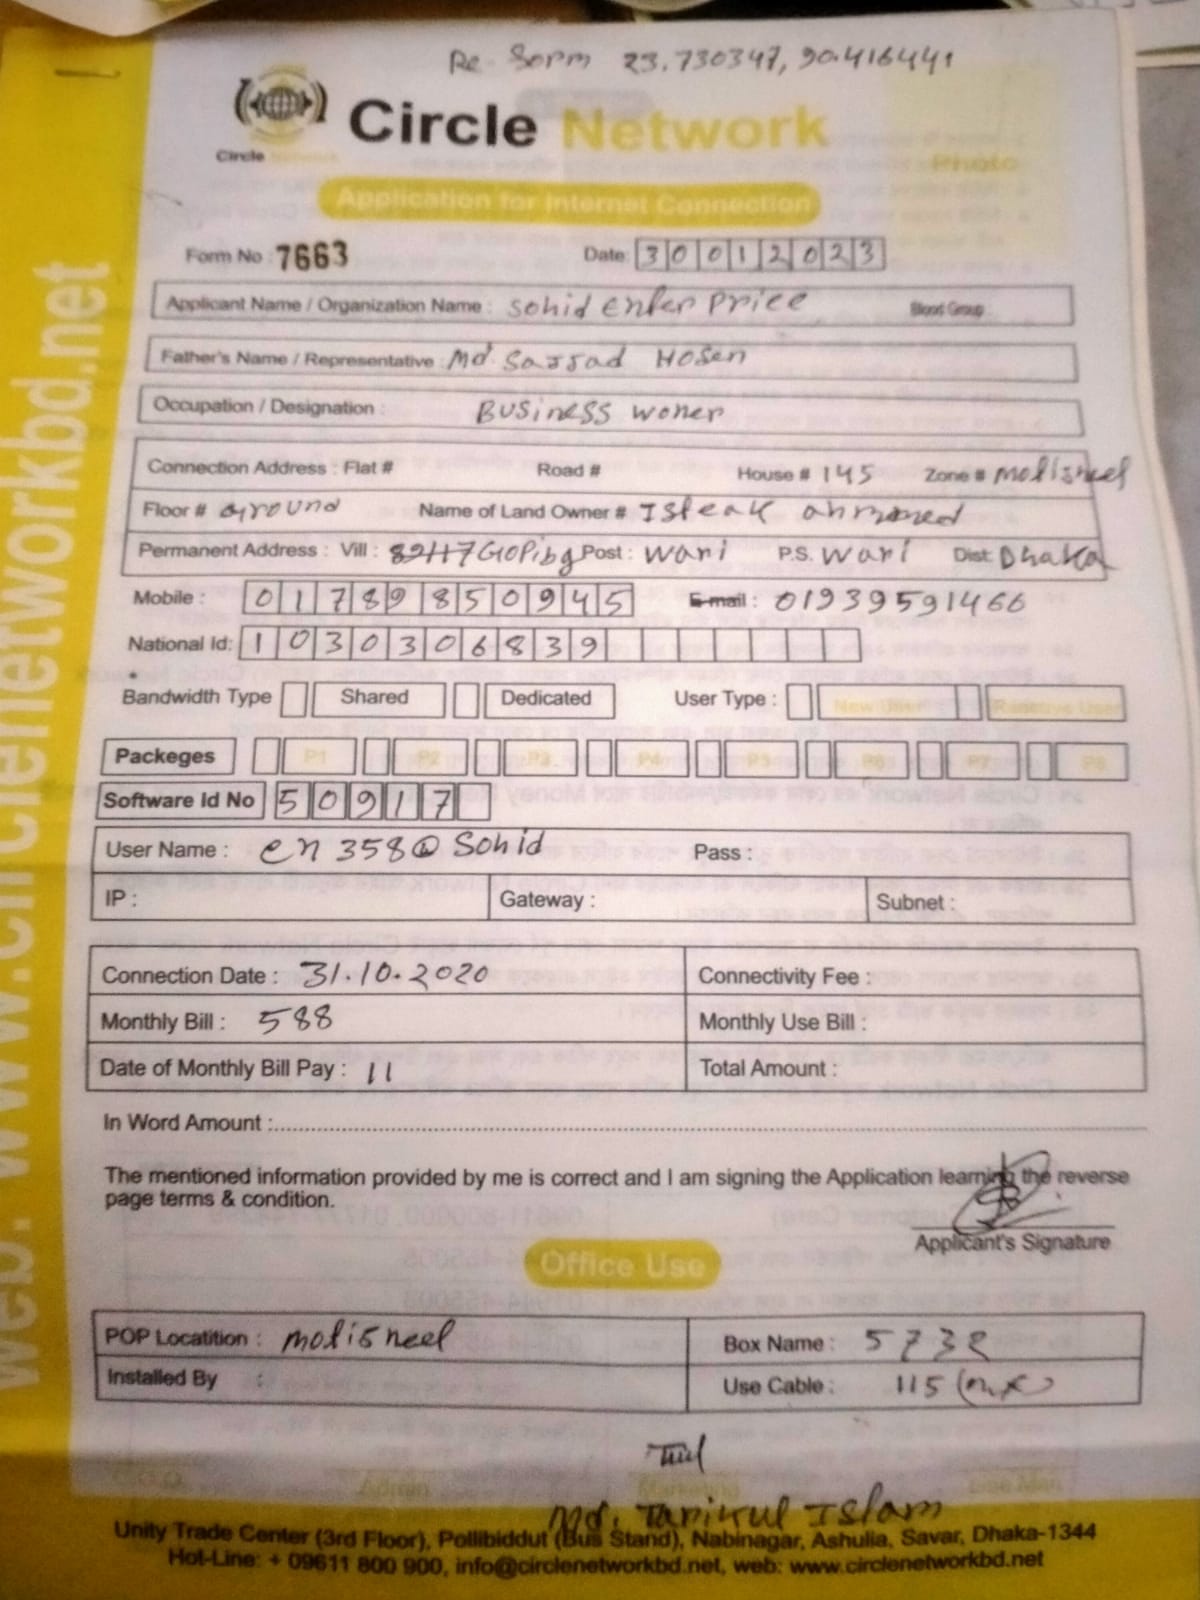 Re- Sorm 23.730347, 90.416441
Circle Network
Circle Network
Photo
Application for Internet Connection
Form No : 7663 Date: 30012023
Applicant Name / Organization Name : Sohid enter Price Blood Group
Father's Name / Representative : Md. Sazzad Hosen
Occupation / Designation : BUSINESS woner
Connection Address : Flat # Road # House # 145 Zone # motisheel
Floor # ground Name of Land Owner # Isteak ahmmed
Permanent Address : Vill : Post : wari P.S. wari Dist: Dhaka
Mobile : 01789850945 E-mail : 01939591466
National Id: 1030306839
Bandwidth Type Shared Dedicated User Type : New User Reactive User
Packeges P1 P2 P3 P4 P5 P6 P7 P8
Software Id No 50917
User Name : cn358@Sohid Pass :
IP : Gateway : Subnet :
Connection Date : 31.10.2020 Connectivity Fee :
Monthly Bill : 588 Monthly Use Bill :
Date of Monthly Bill Pay : 11 Total Amount :
In Word Amount :
The mentioned information provided by me is correct and I am signing the Application learning the reverse
page terms & condition.
Applicant's Signature
Office Use
POP Locatition : motisheel Box Name : 5732
Installed By : Use Cable : 115
Admin Marketing Line Man
Md. Tarikul Islam
Unity Trade Center (3rd Floor), Pollibiddut (Bus Stand), Nabinagar, Ashulia, Savar, Dhaka-1344
Hot-Line: + 09611 800 900, info@circlenetworkbd.net, web: www.circlenetworkbd.net
web: www.circlenetworkbd.net